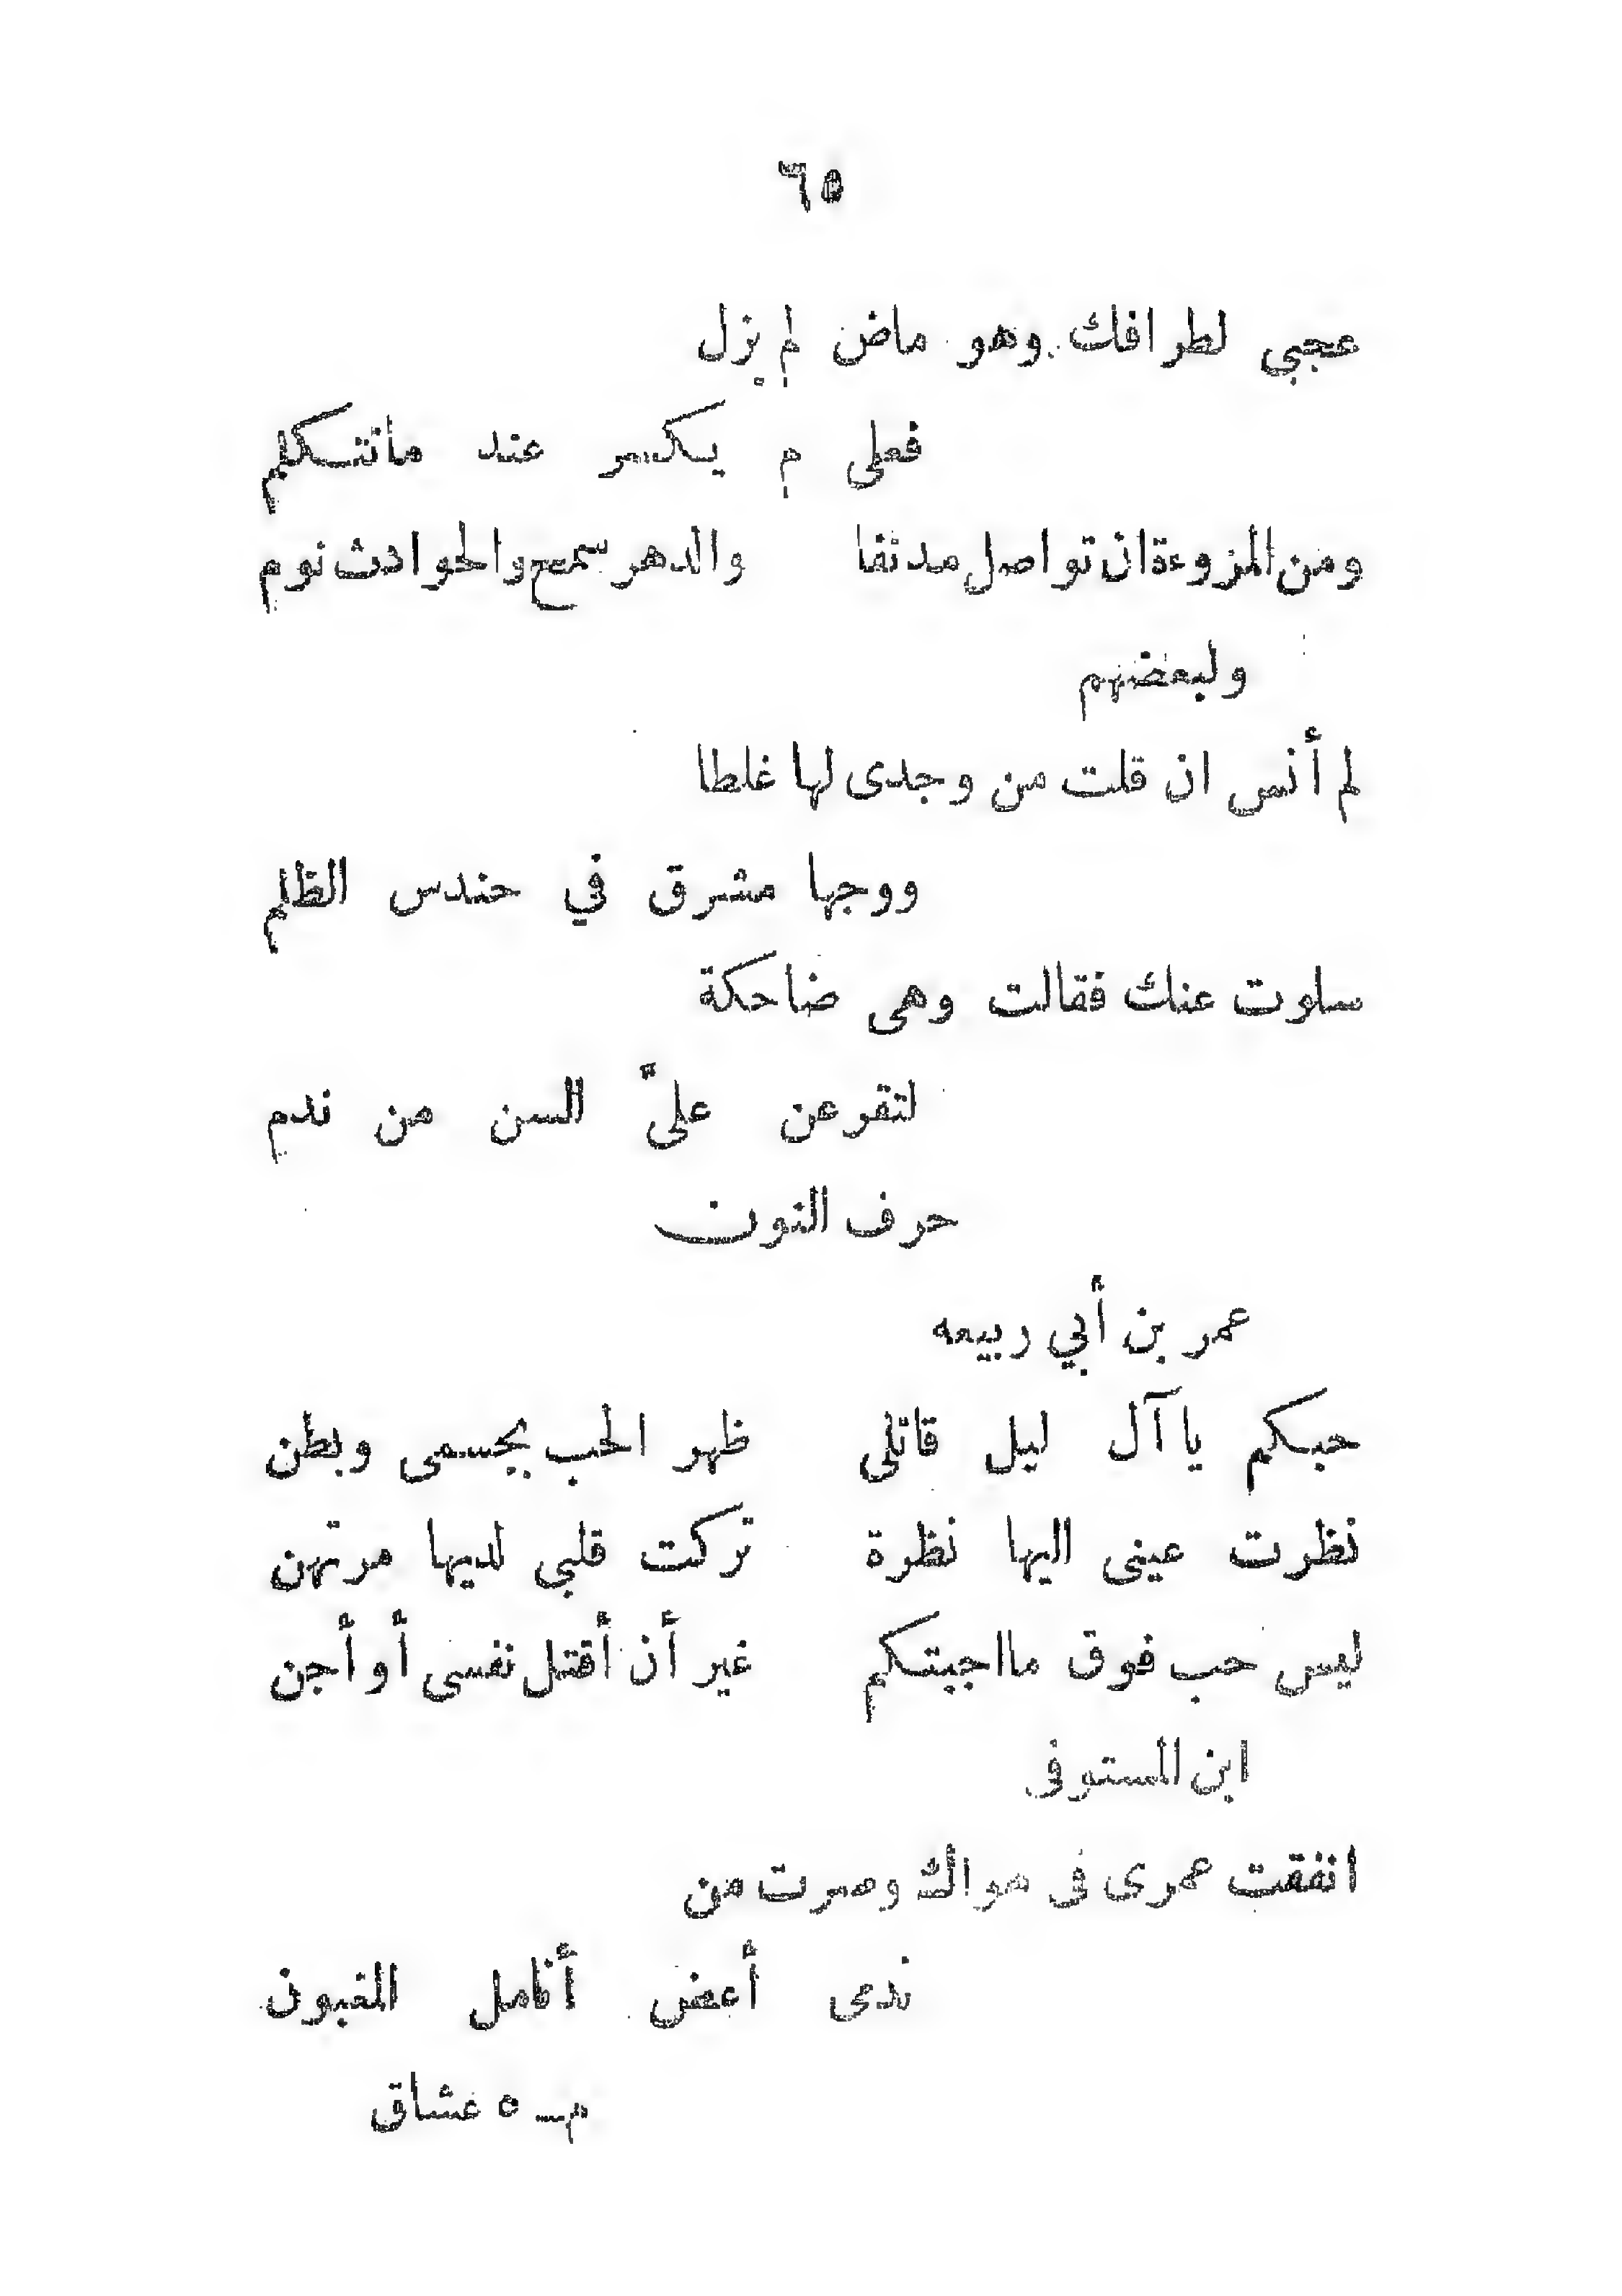 ٦٥
عجبي لطرافك وهو ماض لم يزل
فعلى م يكسر عند ماتتكلم
ومن المزوءة ان تواصل مدنفا والدهر سمح والحوادث نوم
ولبعضهم
لم أنس ان قلت من وجدى لها غلطا
ووجها مشرق في حندس الظلم
سلوت عنك فقالت وهى ضاحكة
لتقرعن علىّ السن من ندم
حرف النون
عمر بن أبي ربيعه
حبكم يا آل ليل قاتلى ظهر الحب بجسمى وبطن
نظرت عينى اليها نظرة تركت قلبي لديها مرتهن
ليس حب فوق مااجبتكم غير أن أقتل نفسى أو أجن
ابن المستوفى
انفقت عمرى فى هواك وصرت من
ندمى أعض أنامل المغبون
م ـ ٥ عشاق